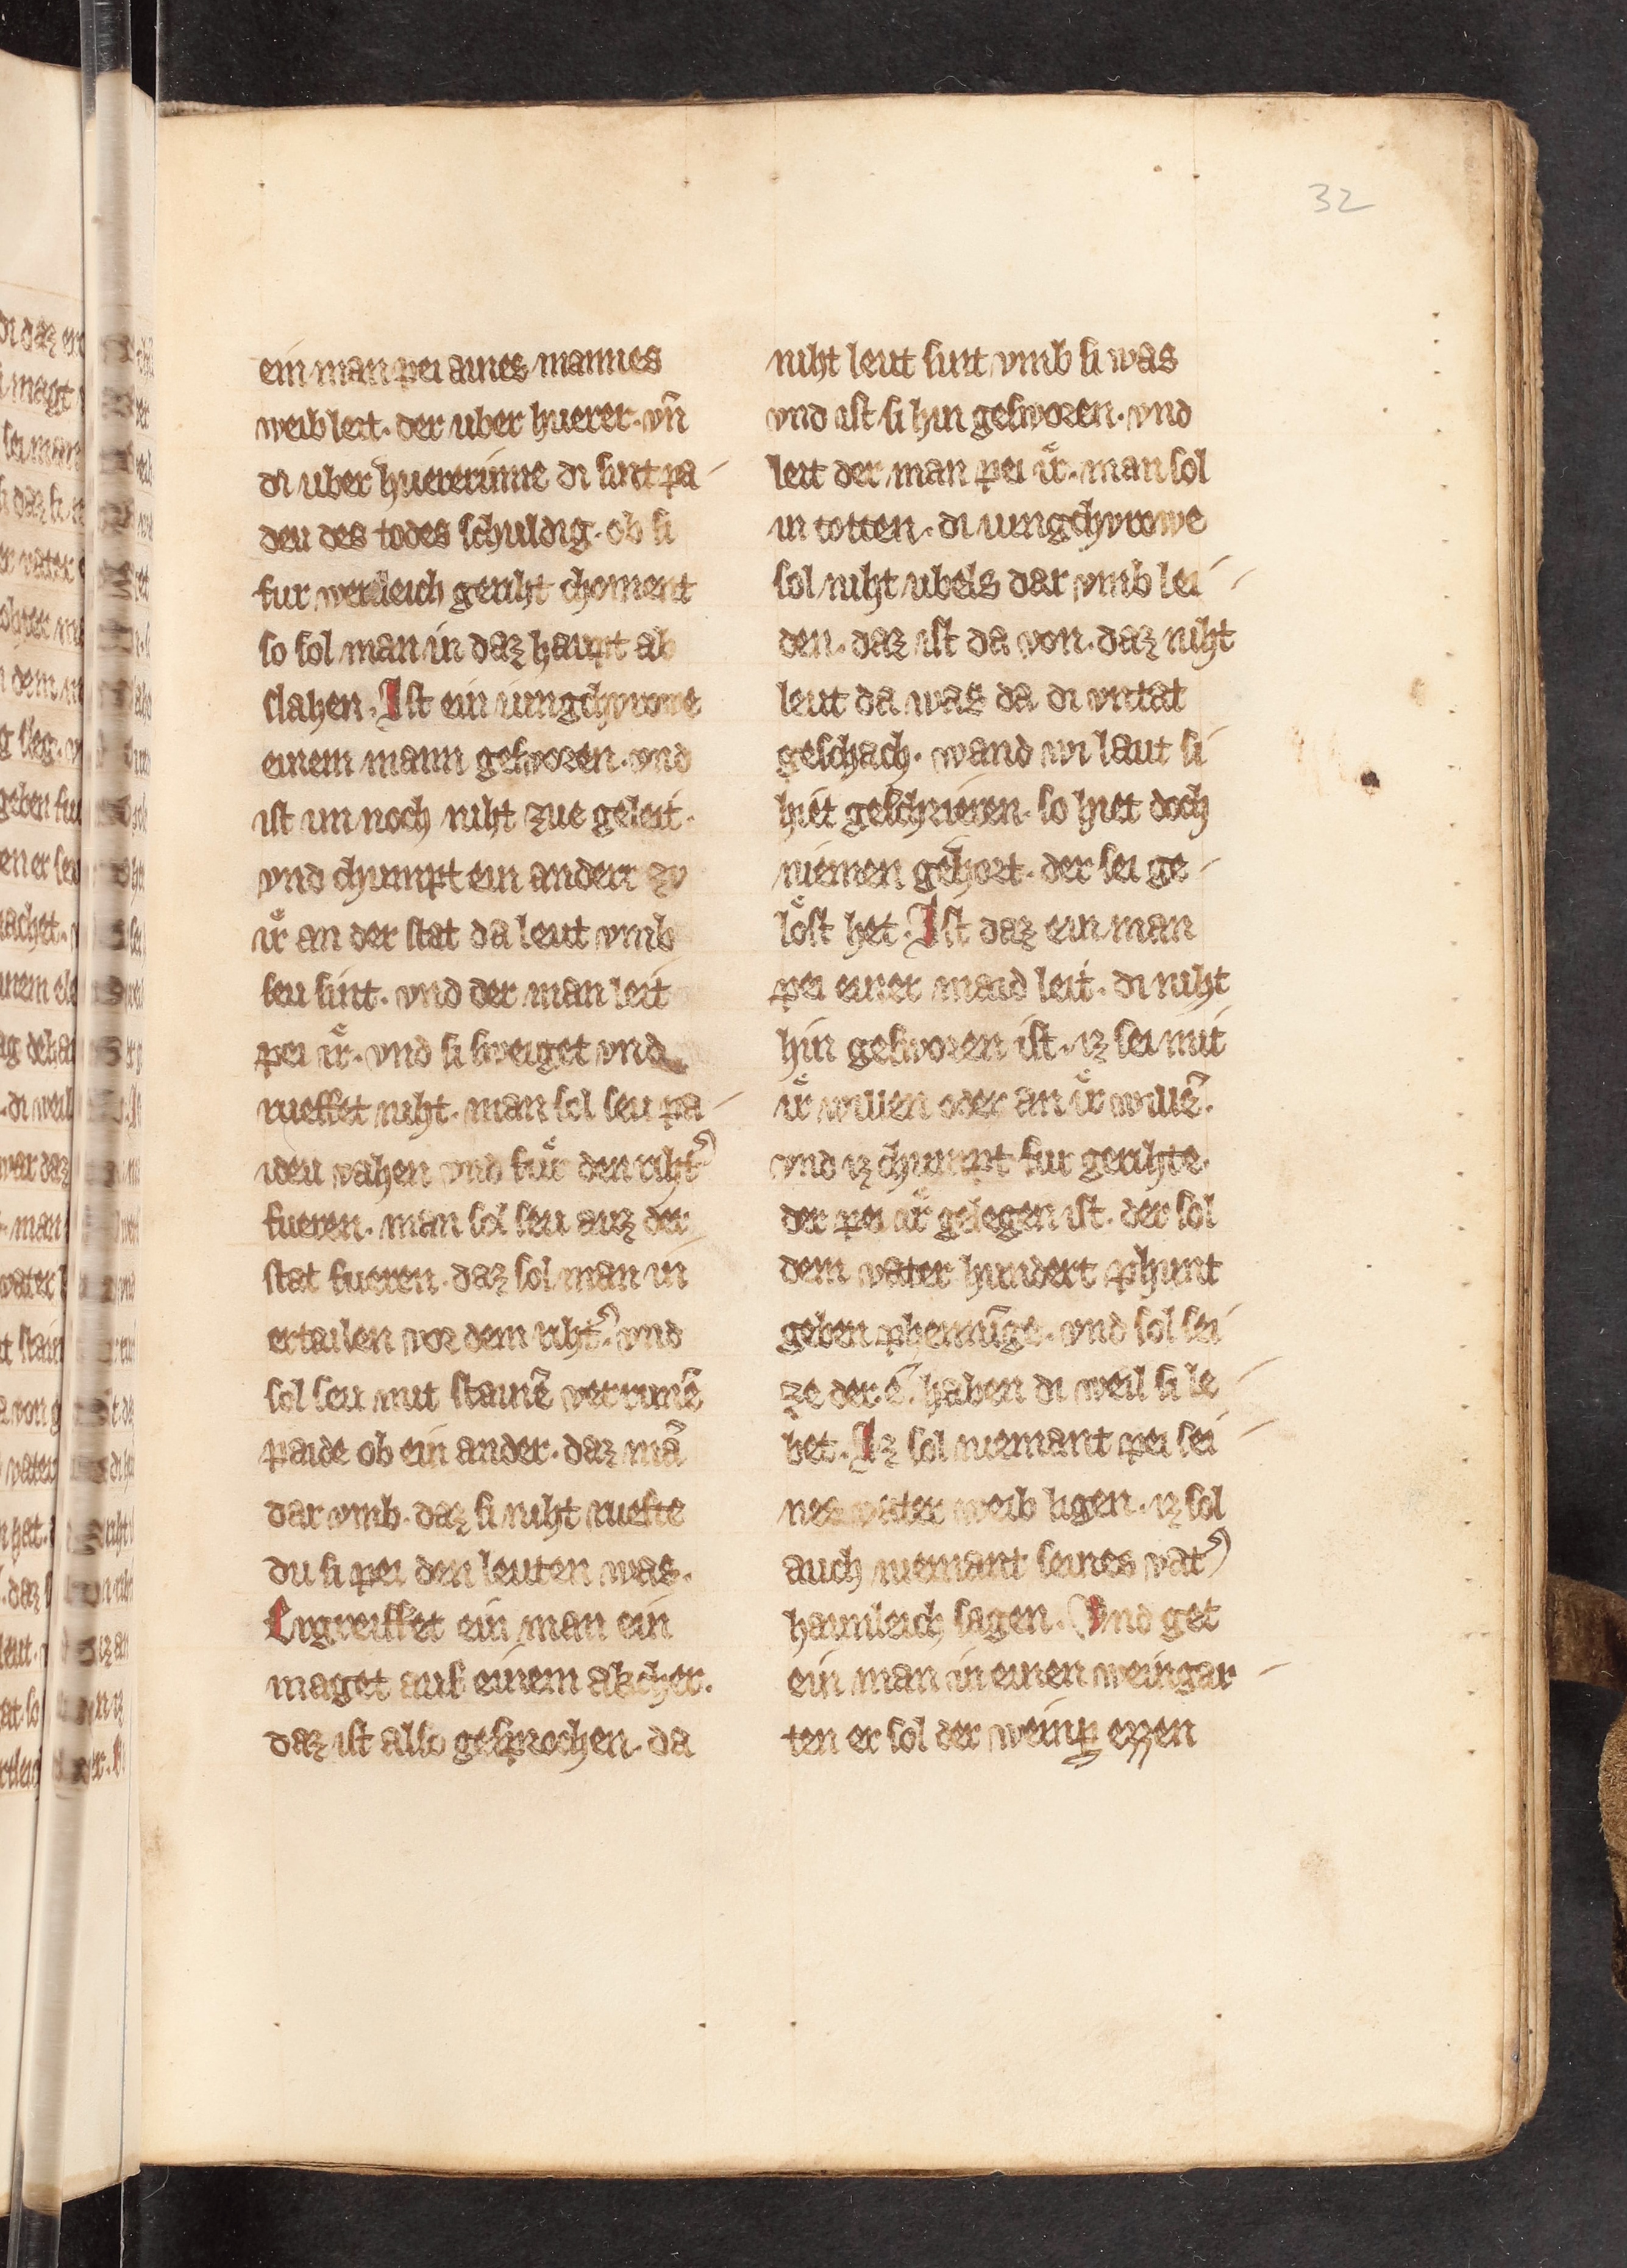 32
ein man pei aines mannes
weib leit. der uber huerer. vn̄
di uber huererinne di sint pa-
deu des todes schuldig. ob si
fur werdleich geriht choment
so sol man in daz haupt ab
slahen. Ist ein iungchvrowe
einem mann gesworen. vnd
ist im noch niht zue geleit.
vnd chumpt ein anderr zv
ir̊ an der stat da leut vmb
seu sint. vnd der man leit
pei ir̊. vnd si sweiget vnd
rueffet niht. man sol seu pa-
ideu vahen vnd fur̊ den riht͛
fueren. man sol seu auz der
stat fueren. daz sol man in
ertailen vor dem riht͛. vnd
sol seu mit stainē verrimē
paide ob ein ander. daz mā
dar vmb. daz si niht ruefte
du si pei den leuten was.
Ergreiffet ein man ein
maget auf einem akcher.
daz ist also gesprochen. da
niht leut sint vmb si was
vnd ist si hin gesworen. vnd
leit der man pei ir̊. man sol
in totten. di iungchvrowe
sol niht ubels dar vmb lei-
den. daz ist da von. daz niht
leut da was da di vntat
geschach. wand wi laut si
hiet geschrieren. so hiet doch
niemen gehort. der sei ge-
lost het. Ist daz ein man
pei einer maid leit. di niht
hin gesworen ist. iz sei mit
ir̊ willen oder an ir̊ willē.
vnd iz chumpt fur gerihte.
der pei ir̊ gelegen ist. der sol
dem vater hundert phunt
geben phennīge. vnd sol sei
ze der ē. haben di weil si le-
bet. Iz sol niemant pei sei-
nes vater weib ligen. iz sol
auch niemant seines vat͛
haimleich sagen. Vnd get
ein man in einen weingar-
ten er sol der weinper ezzen